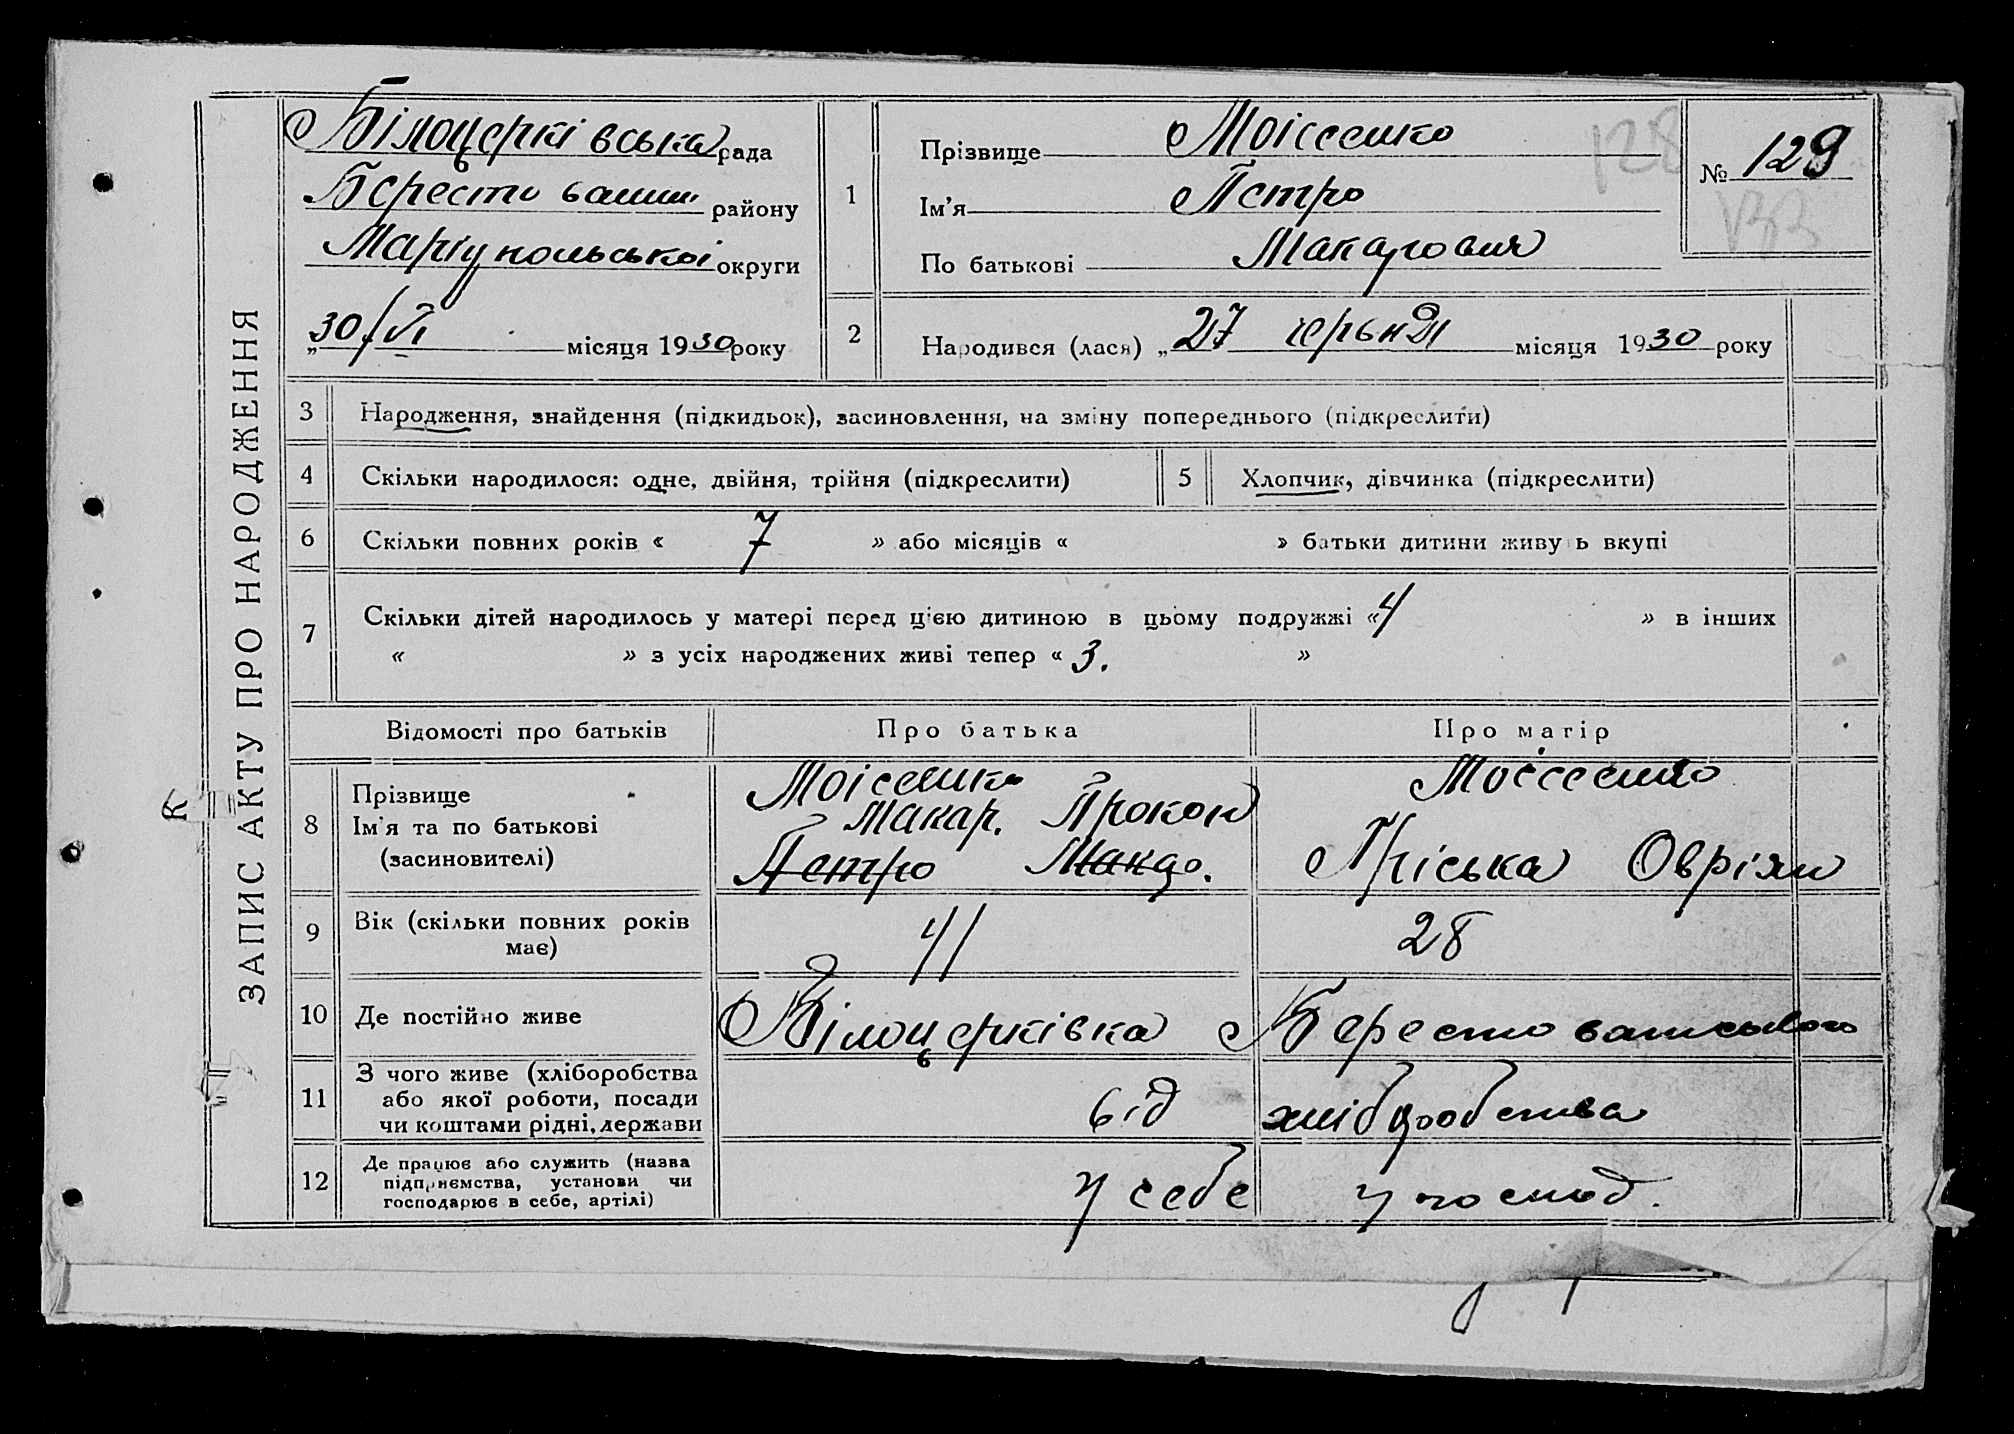 ЗАПИС АКТУ ПРО НАРОДЖЕННЯ
Білоцерківська рада
Берестовськ району
Маріупольської округи
„30/VI місяця 1930 року
1
Прізвище Моісеєнко
Ім'я Петро
По батькові Макарович
128
№ 129
2
Народився (лася) „27 червня місяця 1930 року
3 Народження, знайдення (підкидьок), засиновлення, на зміну попереднього (підкреслити)
4 Скільки народилося: одне, двійня, трійня (підкреслити)
5 Хлопчик, дівчинка (підкреслити)
6 Скільки повних років « 7 » або місяців « » батьки дитини живуть вкупі
7 Скільки дітей народилось у матері перед цією дитиною в цьому подружжі «4 » в інших
« » з усіх народжених живі тепер « 3. »
Відомості про батьків Про батька Про матір
8 Прізвище
Ім'я та по батькові
(засиновителі)
Моісеєнко
Макар. Прокоп
Петро Макар.
Моісеєнко
Пріська Овріян
9 Вік (скільки повних років
має)
41 28
10 Де постійно живе Білоцерківка Берестовського
11 З чого живе (хліборобства
або якої роботи, посади
чи коштами рідні, держави
від хліборобства
12 Де працює або служить (назва
підприємства, установи чи
господарює в себе, артілі)
у себе у господ.